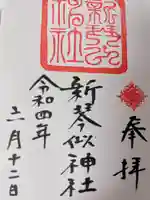 奉拝
新琴似神社
令和四年
二月十二日
新琴似
神社